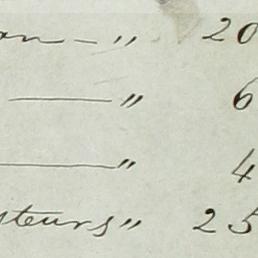 an — " 20
— " 6
— " 4
steurs " 25